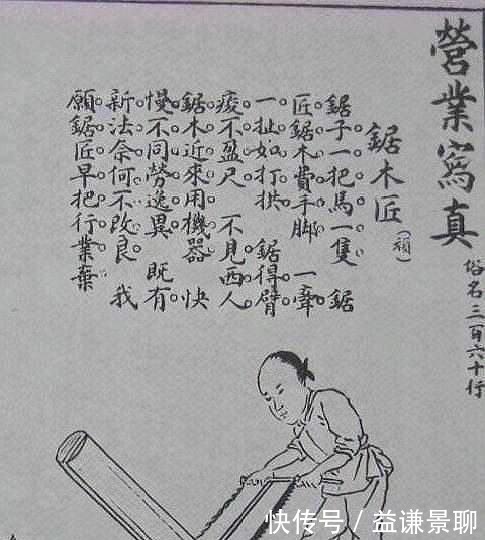 營業寫真
俗名三百六十行
鋸木匠
鋸子一把馬一隻 鋸
匠鋸木費手脚 一牽
一扯如打拱 鋸得臂
痠不盈尺 不見西人
鋸木近來用機器 快
慢不同勞逸異 既有
新法奈何不改良 我
願鋸匠早把行業棄
快传号/益谦景聊